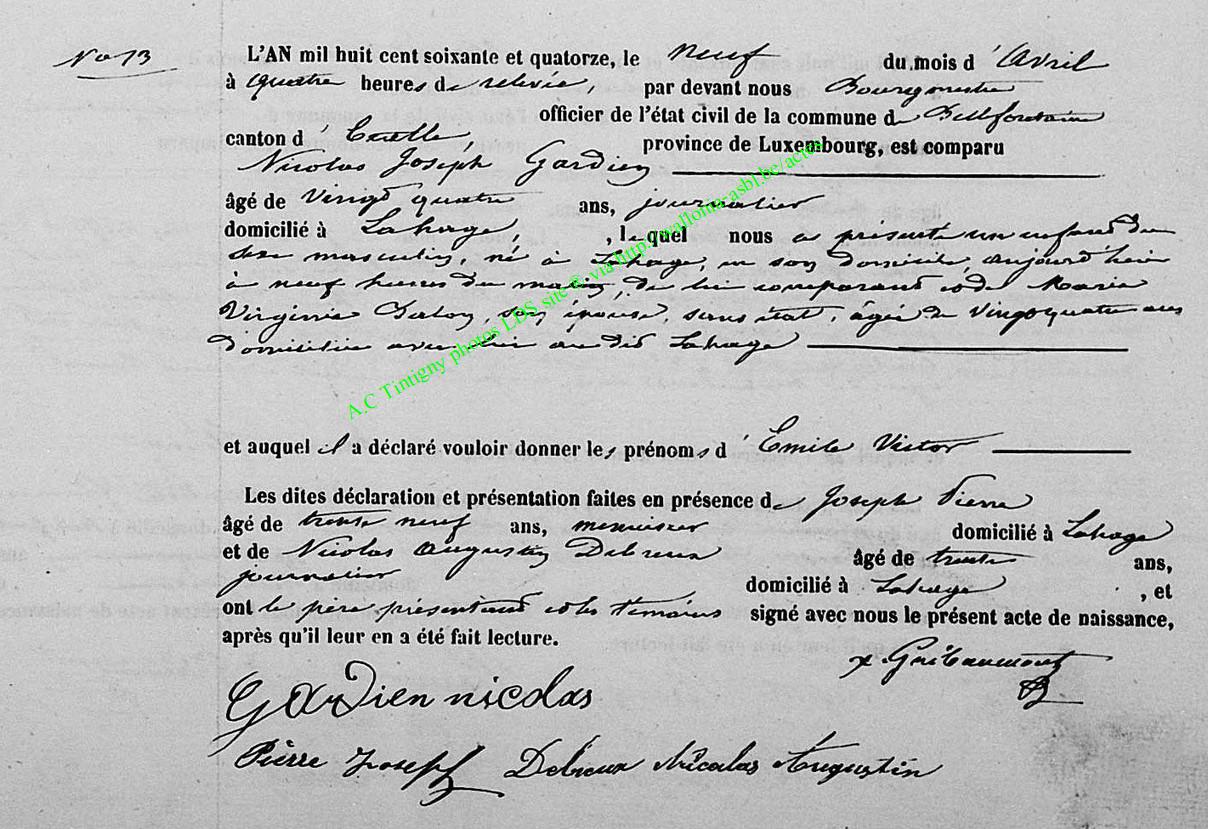 No 13
L'AN mil huit cent soixante et quatorze, le neuf du mois d'Avril
à quatre heures de relevée, par devant nous Bourgmestre
officier de l'état civil de la commune de Bellefontaine
canton d'Etalle, province de Luxembourg, est comparu
Nicolas Joseph Gardien
âgé de vingt quatre ans, journalier
domicilié à Lahage, , lequel nous a présenté un enfant du
sexe masculin, né à Lahage, en son domicile, aujourd'hui
à neuf heures du matin, de lui comparant et de Marie
Virginie, son épouse, sans état, âgée de vingt quatre ans
domiciliée avec lui au dit Lahage
et auquel il a déclaré vouloir donner les prénoms d'Emile Victor
Les dites déclaration et présentation faites en présence de Joseph Pierre
âgé de trente neuf ans, menuisier domicilié à Lahage
et de Nicolas Augustin Debreux âgé de trente ans,
journalier domicilié à Lahage , et
ont le père présentant et les témoins signé avec nous le présent acte de naissance,
après qu'il leur en a été fait lecture.
Gribaumont
Gardien nicolas
Pierre Joseph Debreux Nicolas Augustin
A.C Tintigny photos LDS site ® via http://wallonia-asbl.be/actes